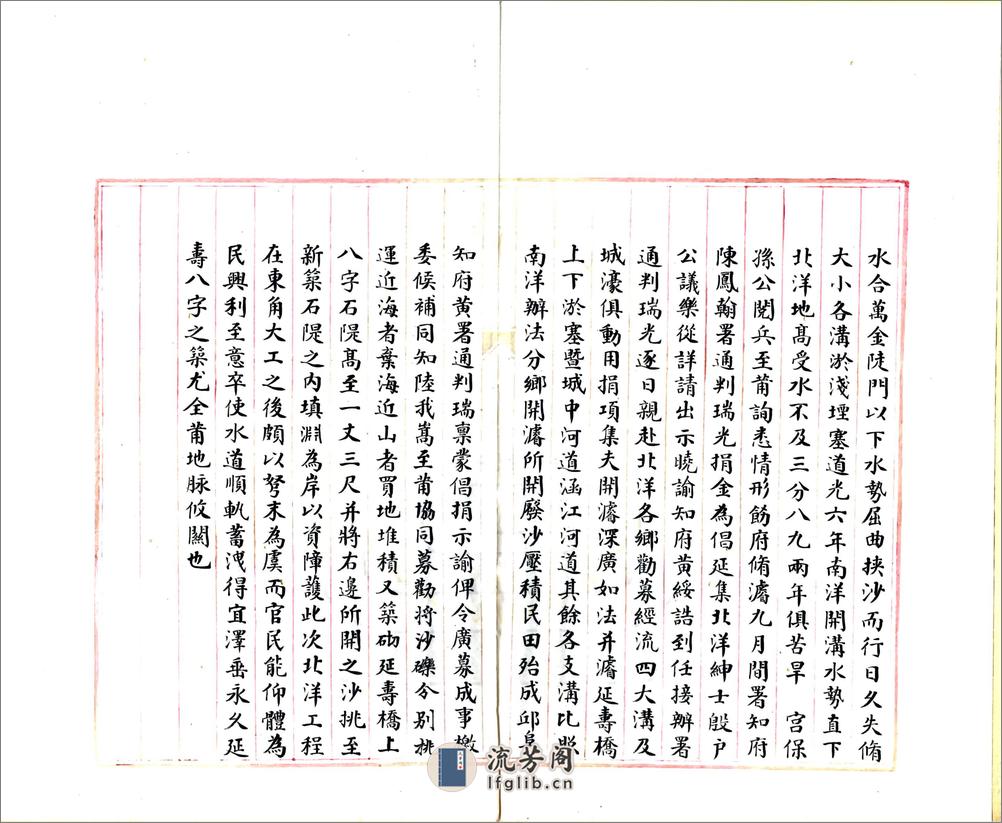 水合萬金陡門以下水勢屈曲挾沙而行日久失脩
大小各溝淤淺堙塞道光六年南洋開溝水勢直下
北洋地髙受水不及三分八九兩年俱苦旱　宮保
孫公閱兵至莆詢悉情形飭府脩濬九月間署知府
陳鳳翰署通判瑞光捐金為倡延集北洋紳士殷户
公議樂從詳請出示曉諭知府黃綏誥到任接辦署
通判瑞光逐日親赴北洋各鄉勸募經流四大溝及
城濠俱動用捐項集夫開濬深廣如法并濬延壽橋
上下淤塞暨城中河道涵江河道其餘各支溝比照
南洋辦法分鄉開濬所開廢沙壓積民田殆成邱阜
知府黃署通判瑞禀蒙倡捐示諭俾令廣募成事檄
委候補同知陸我嵩至莆協同募勸將沙礫令别挑
運近海者棄海近山者買地堆積又築砌延壽橋上
八字石隄髙至一丈三尺并將右邊所開之沙挑至
新築石隄之内填淵為岸以資障護此次北洋工程
在東角大工之後頗以弩末為虞而官民能仰體為
民興利至意卒使水道順軌蓄洩得宜澤垂永久延
壽八字之築尤全莆地脉攸關也
流芳阁
lfglib.cn